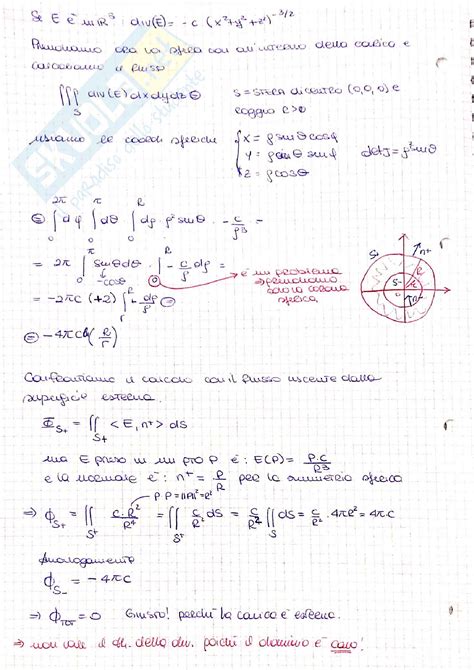 Se E è in ℝ³: div(E) = - c (x²+y²+z²)^{-3/2}
Prendiamo ora la sfera con all'interno della carica e
calcoliamo il flusso
∭_S div(E) dxdydz ⊜ S = sfera di centro (0,0,0) e
raggio c>0
usiamo le coord. sferiche { x = ρ sinθ cosφ
y = ρ sinθ sinφ det J = ρ² sinθ
z = ρ cosθ
⊜ ∫_0^{2π} dφ ∫_0^π dθ ∫_0^R dρ · ρ² sinθ · - c/ρ³ =
= 2π ∫_0^π sinθ dθ ∫_0^R - c/ρ dρ =
-cosθ
è un problema
→ prendiamo
solo la corona
sferica
S+ n+ S- n- R r
= -2πc (+2) ∫_r^R dρ/ρ ⊜
⊜ -4πc (R/r)
Confrontiamo il calcolo con il flusso uscente dalla
superficie esterna.
Φ_{S+} = ∬_{S+} <E, n+> dS
ma E preso in un pto P è: E(P) = P·c/R³
e la normale è: n+ = P/R per la simmetria sferica
P·P = ‖P‖² = R²
⇒ Φ_{S+} = ∬_{S+} c·R²/R⁴ = ∬_{S+} c/R² dS = c/R² ∬ dS = c/R² · 4πR² = 4πc
Analogamente
Φ_{S-} = -4πc
⇒ Φ_{TOT} = 0 Giusto! perché la carica è esterna.
⇒ non vale il th. della div. poiché il dominio è cavo!
SKUOLA.net
paradiso dello studente